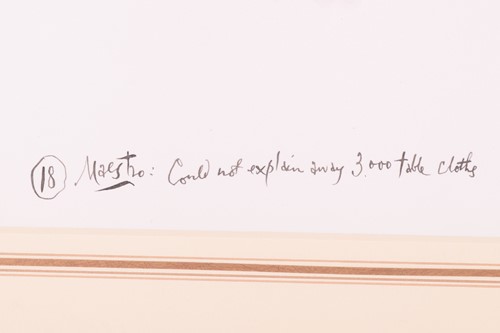 18 Maestro: Could not explain away 3.000 table cloths